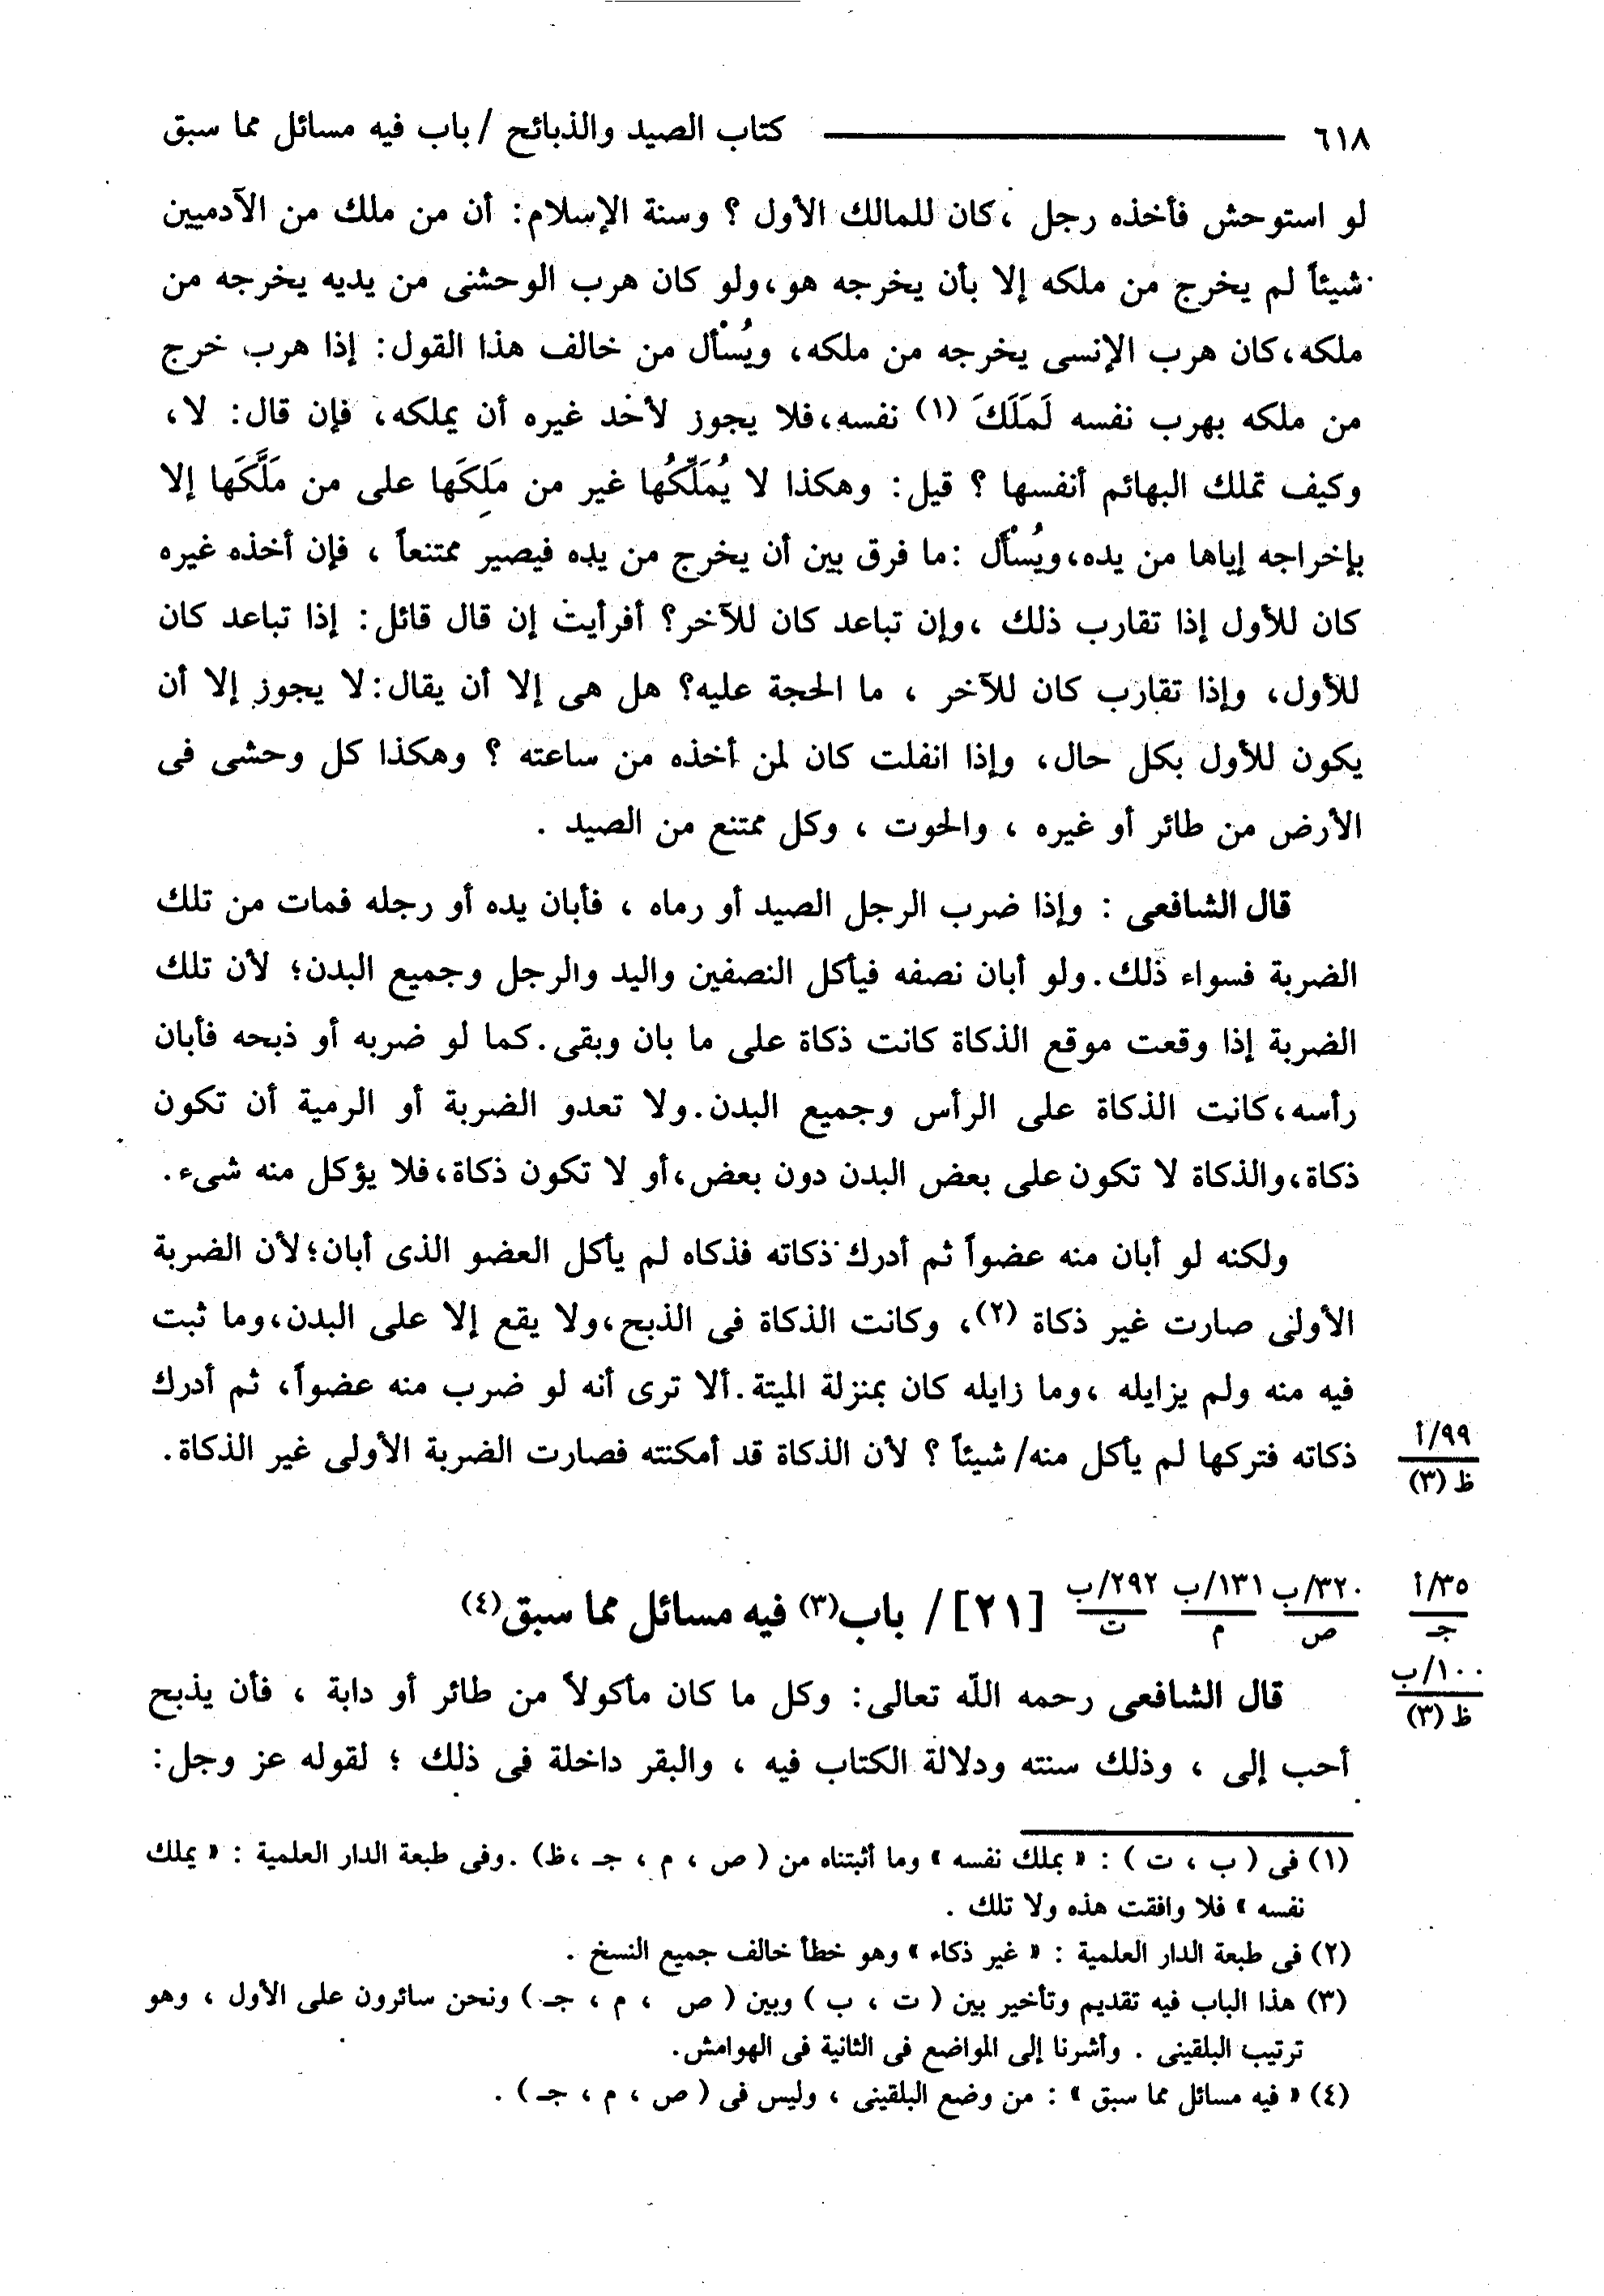 ٦١٨ ——— كتاب الصيد والذبائح / باب فيه مسائل مما سبق
لو استوحش فأخذه رجل ، كان للمالك الأول ؟ وسنة الإسلام: أن من ملك من الآدميين
شيئاً لم يخرج من ملكه إلا بأن يخرجه هو، ولو كان هرب الوحشى من يديه يخرجه من
ملكه، كان هرب الإنسى يخرجه من ملكه، ويُسْأل من خالف هذا القول: إذا هرب خرج
من ملكه بهرب نفسه لَمَلَكَ (١) نفسه، فلا يجوز لأخذ غيره أن يملكه، فإن قال: لا،
وكيف تملك البهائم أنفسها ؟ قيل: وهكذا لا يُمَلِّكُها غير من مَلِكَها على من مَلَّكَها إلا
بإخراجه إياها من يده، ويُسْأل : ما فرق بين أن يخرج من يده فيصير ممتنعاً ، فإن أخذه غيره
كان للأول إذا تقارب ذلك ، وإن تباعد كان للآخر؟ أفرأيت إن قال قائل: إذا تباعد كان
للأول، وإذا تقارب كان للآخر ، ما الحجة عليه؟ هل هى إلا أن يقال: لا يجوز إلا أن
يكون للأول بكل حال، وإذا انفلت كان لمن أخذه من ساعته ؟ وهكذا كل وحشى فى
الأرض من طائر أو غيره ، والحوت ، وكل ممتنع من الصيد .
قال الشافعى : وإذا ضرب الرجل الصيد أو رماه ، فأبان يده أو رجله فمات من تلك
الضربة فسواء ذلك. ولو أبان نصفه فيأكل النصفين واليد والرجل وجميع البدن؛ لأن تلك
الضربة إذا وقعت موقع الذكاة كانت ذكاة على ما بان وبقى. كما لو ضربه أو ذبحه فأبان
رأسه، كانت الذكاة على الرأس وجميع البدن. ولا تعدو الضربة أو الرمية أن تكون
ذكاة، والذكاة لا تكون على بعض البدن دون بعض، أو لا تكون ذكاة، فلا يؤكل منه شىء.
ولكنه لو أبان منه عضواً ثم أدرك ذكاته فذكاه لم يأكل العضو الذى أبان؛ لأن الضربة
الأولى صارت غير ذكاة (٢)، وكانت الذكاة فى الذبح، ولا يقع إلا على البدن، وما ثبت
فيه منه ولم يزايله ، وما زايله كان بمنزلة الميتة. ألا ترى أنه لو ضرب منه عضواً، ثم أدرك
ذكاته فتركها لم يأكل منه/ شيئاً ؟ لأن الذكاة قد أمكنته فصارت الضربة الأولى غير الذكاة.
٩٩/أ
ظ (٣)
[٢١] / باب(٣) فيه مسائل مما سبق(٤)
٣٥/أ
جـ
٣٢٠/ب
ص
١٣١/ب
م
٢٩٢/ب
ت
١٠٠/ب
ظ (٣)
قال الشافعى رحمه الله تعالى: وكل ما كان مأكولاً من طائر أو دابة ، فأن يذبح
أحب إلى ، وذلك سنته ودلالة الكتاب فيه ، والبقر داخلة فى ذلك ؛ لقوله عز وجل:
(١) فى ( ب ، ت ) : « بملك نفسه » وما أثبتناه من ( ص ، م ، جـ ، ظ) . وفى طبعة الدار العلمية : « يملك
نفسه » فلا وافقت هذه ولا تلك .
(٢) فى طبعة الدار العلمية : « غير ذكاء » وهو خطأ خالف جميع النسخ .
(٣) هذا الباب فيه تقديم وتأخير بين ( ت ، ب ) وبين ( ص ، م ، جـ ) ونحن سائرون على الأول ، وهو
ترتيب البلقينى . وأشرنا إلى المواضع فى الثانية فى الهوامش.
(٤) « فيه مسائل مما سبق » : من وضع البلقينى ، وليس فى ( ص ، م ، جـ ) .